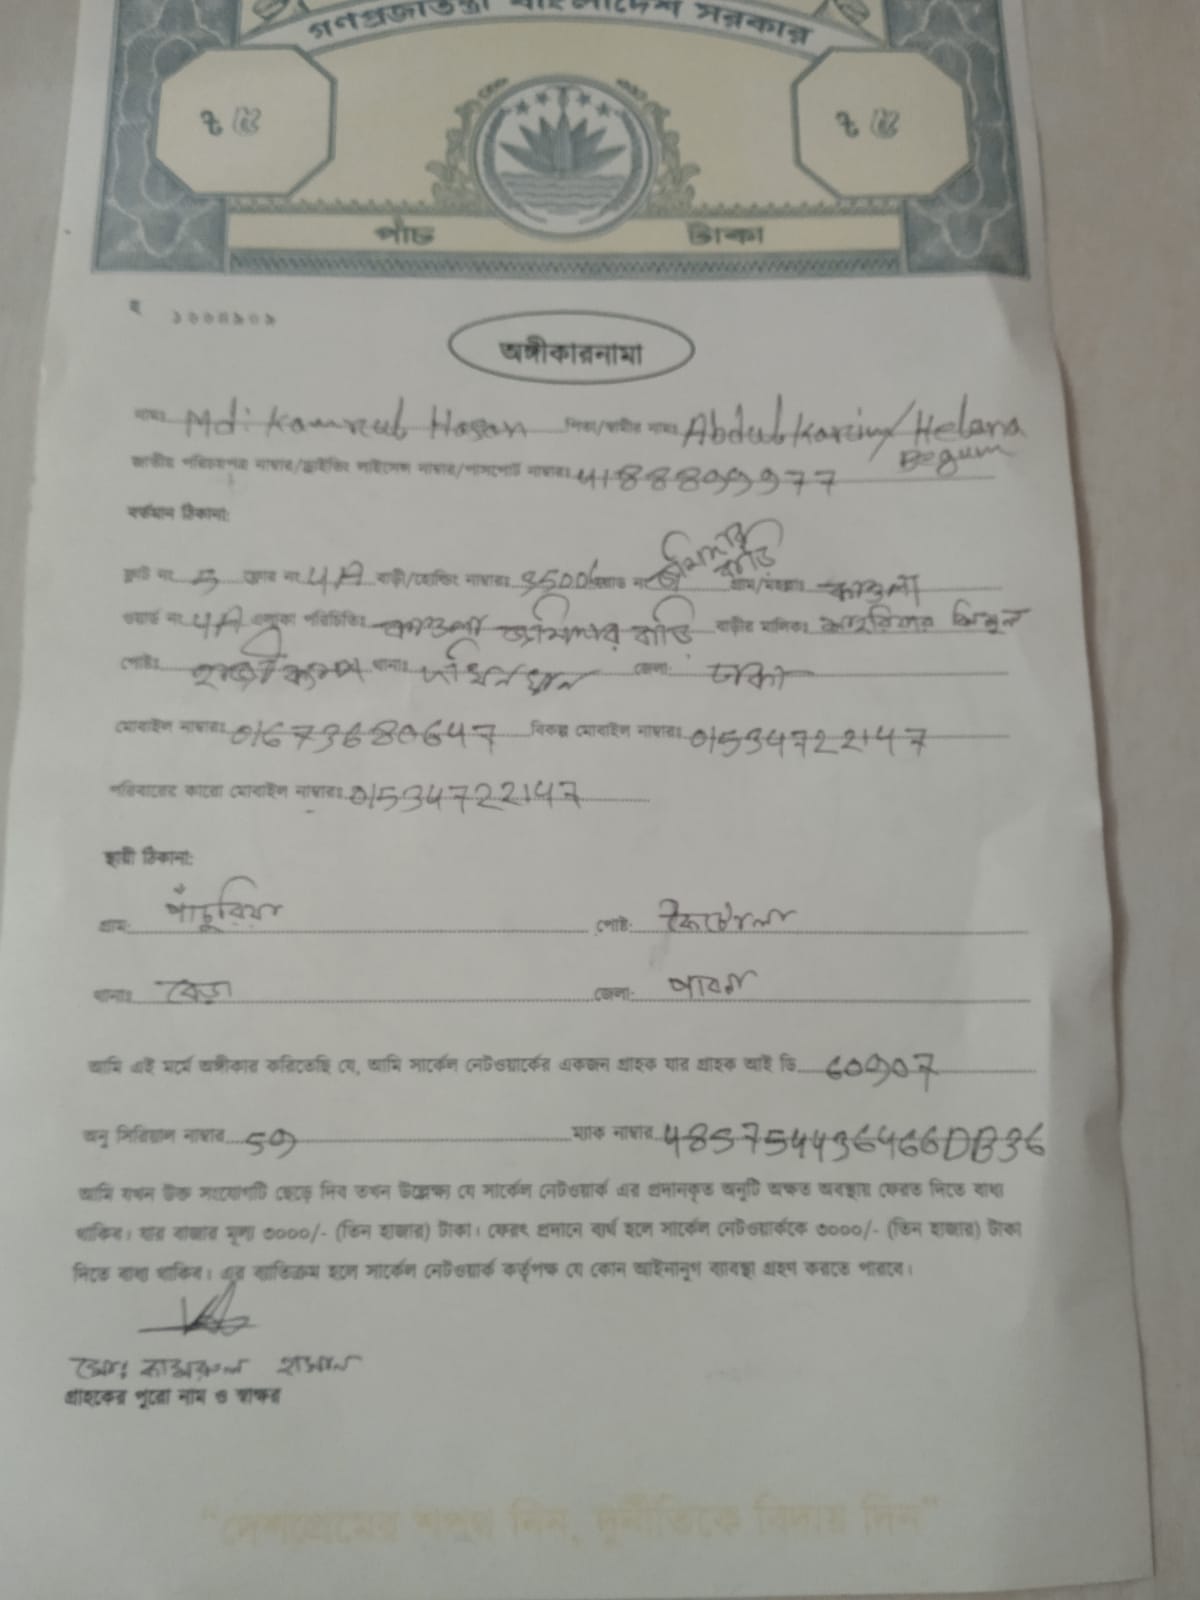 গণপ্রজাতন্ত্রী বাংলাদেশ সরকার
৳ ৫ ৳ ৫
পাঁচ টাকা
অঙ্গীকারনামা
নামঃ Md: Kamrul Hasan পিতা/স্বামীর নামঃ Abdul Karim/Helana Begum
জাতীয় পরিচয়পত্র নাম্বার/ড্রাইভিং লাইসেন্স নাম্বার/পাসপোর্ট নাম্বারঃ 4188899977
বর্তমান ঠিকানা:
ফ্লাট নং 5 ফ্লোর নং 4A বাড়ী/হোল্ডিং নাম্বারঃ জমিদার বাড়ি গ্রাম/মহল্লাঃ কাওলা
ওয়ার্ড নং 4A এলাকা পরিচিতিঃ কাওলা জমিদার বাড়ি বাড়ীর মালিকঃ
পোষ্টঃ হাজী ক্যাম্প থানাঃ দক্ষিনখান জেলা: ঢাকা
মোবাইল নাম্বারঃ 01673680647 বিকল্প মোবাইল নাম্বারঃ 01534722147
পরিবারের কারো মোবাইল নাম্বারঃ 01534722147
স্থায়ী ঠিকানা:
গ্রাম: পাঁচুরিয়া পোষ্ট:
থানাঃ বেড়া জেলা: পাবনা
আমি এই মর্মে অঙ্গীকার করিতেছি যে, আমি সার্কেল নেটওয়ার্কের একজন গ্রাহক যার গ্রাহক আই ডি 60907
অনু সিরিয়াল নাম্বার 59 ম্যাক নাম্বার 485754436466DB36
আমি যখন উক্ত সংযোগটি ছেড়ে দিব তখন উল্লেক্ষ্য যে সার্কেল নেটওয়ার্ক এর প্রদানকৃত অনুটি অক্ষত অবস্থায় ফেরত দিতে বাধ্য
থাকিব। যার বাজার মূল্য ৩০০০/- (তিন হাজার) টাকা। ফেরৎ প্রদানে ব্যর্থ হলে সার্কেল নেটওয়ার্ককে ৩০০০/- (তিন হাজার) টাকা
দিতে বাধ্য থাকিব। এর ব্যতিক্রম হলে সার্কেল নেটওয়ার্ক কর্তৃপক্ষ যে কোন আইনানুগ ব্যবস্থা গ্রহণ করতে পারবে।
মোঃ কামরুল হাসান
গ্রাহকের পুরো নাম ও স্বাক্ষর
“দেশপ্রেমের শপথ নিন, দুর্নীতিকে বিদায় দিন”